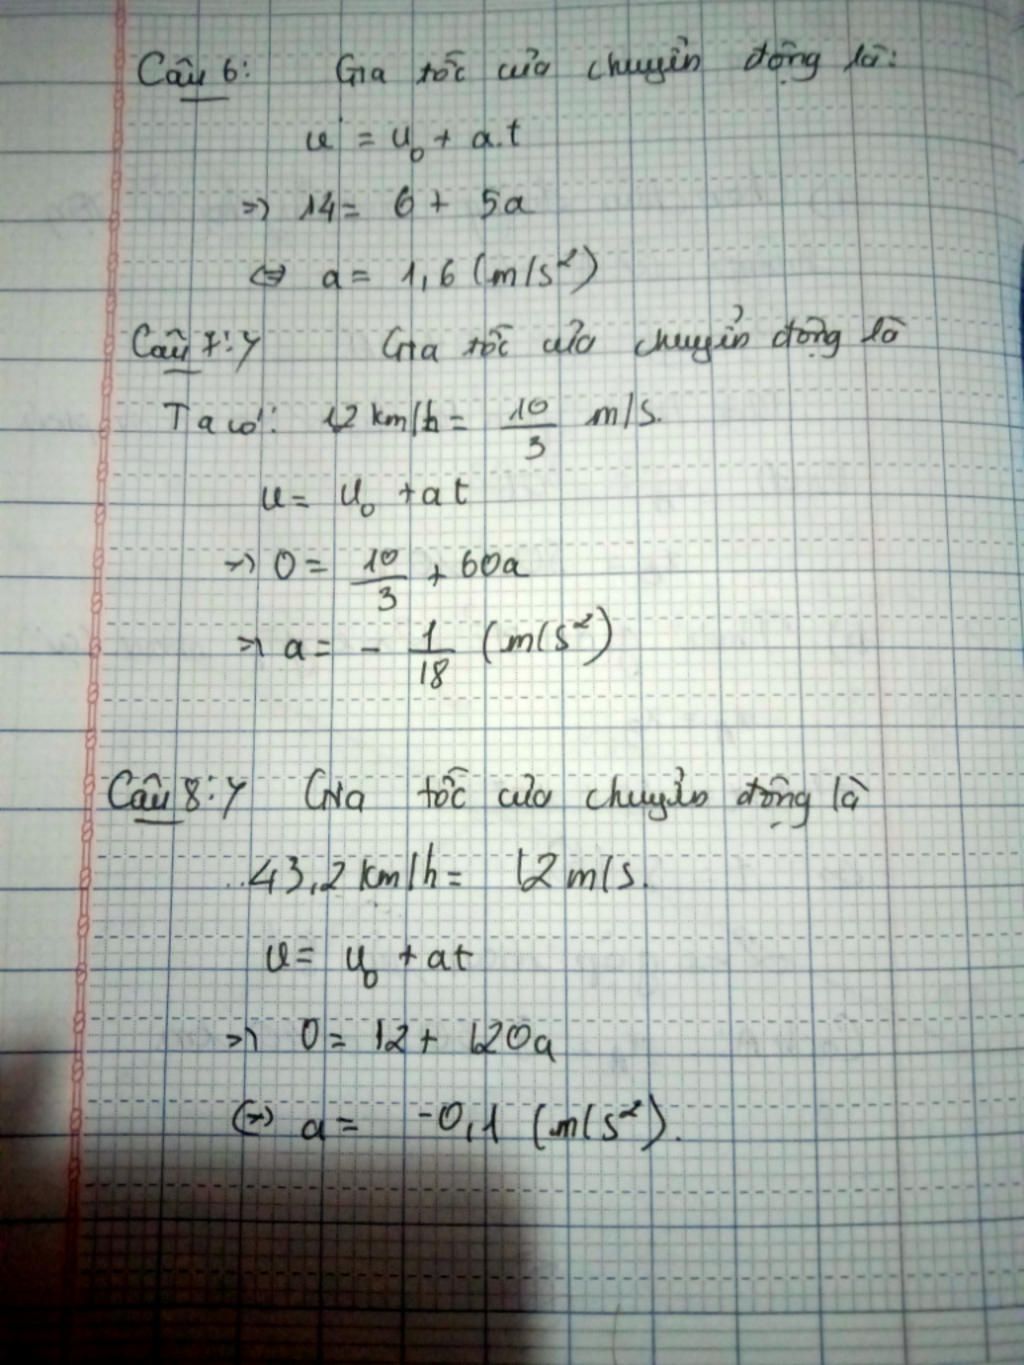 Câu 6: Gia tốc của chuyển động là:
v = v₀ + a.t
=> 14 = 6 + 5a
<=> a = 1,6 (m/s²)
Câu 7: Gia tốc của chuyển động là
Ta có: 12 km/h = 10/3 m/s.
v = v₀ + at
=> 0 = 10/3 + 60a
=> a = - 1/18 (m/s²)
Câu 8: Gia tốc của chuyển động là
43,2 km/h = 12 m/s.
v = v₀ + at
=> 0 = 12 + 120a
<=> a = -0,1 (m/s²).